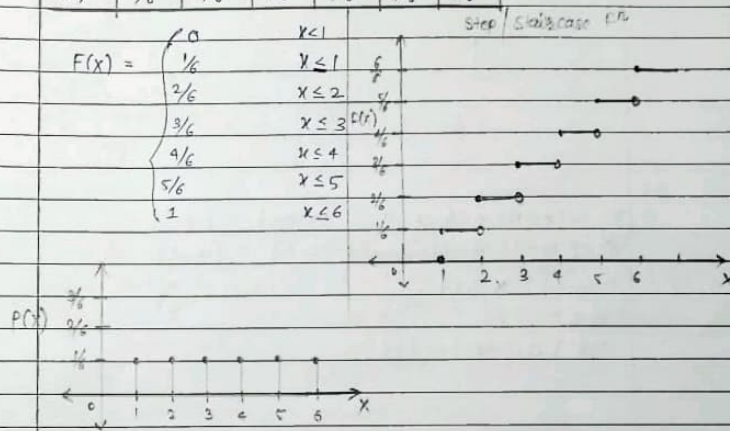 Step / Staircase fn
F(x) =
0 x<1
1/6 x ≤ 1
2/6 x ≤ 2
3/6 x ≤ 3
4/6 x ≤ 4
5/6 x ≤ 5
1 x ≤ 6
F(x)
6/6
5/6
4/6
3/6
2/6
1/6
0 1 2 3 4 5 6 x
P(X)
3/6
2/6
1/6
0 1 2 3 4 5 6 X